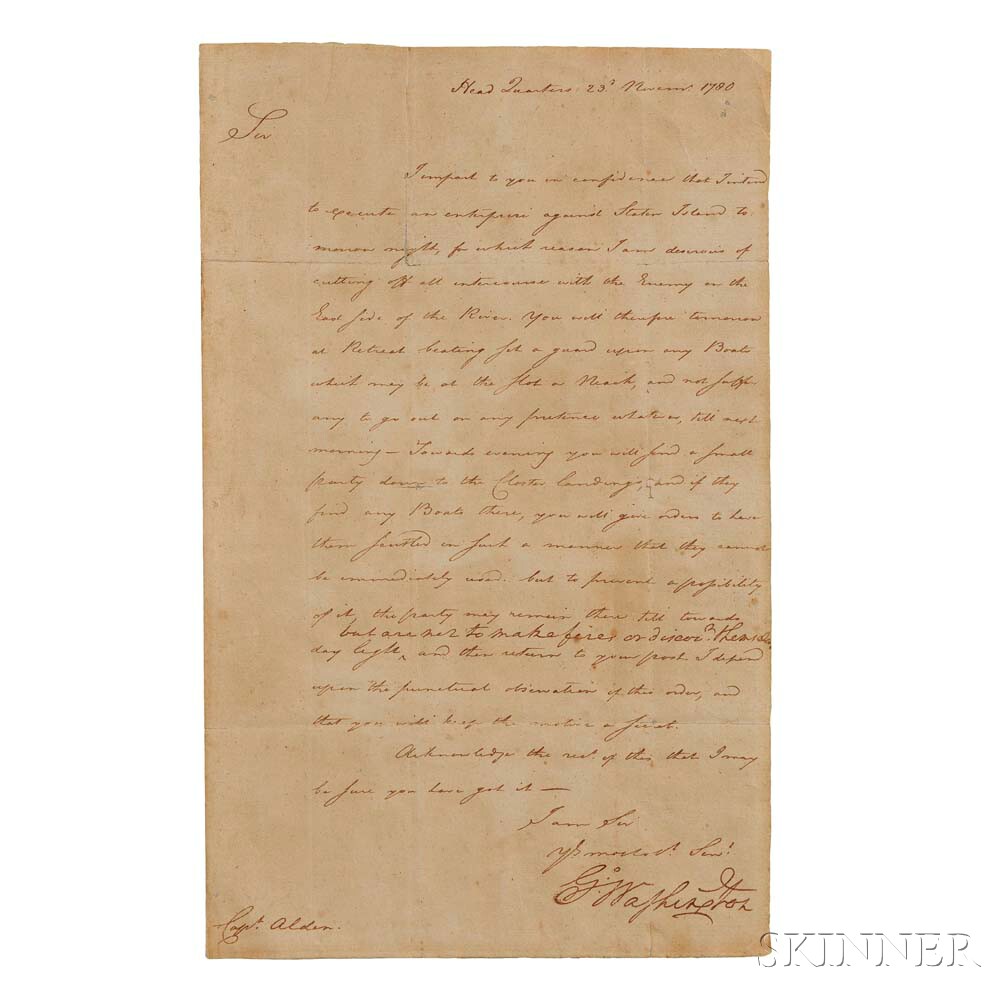 Head Quarters 23d Novemr. 1780
Sir
I impart to you in confidence that I intend
to execute an enterprise against Staten Island to
morrow night, for which reason I am desirous of
cutting off all intercourse with the Enemy on the
East side of the River. You will therefore tomorrow
at Retreat beating set a guard upon any Boats
which may be at the Slot or Niack, and not suffer
any to go out on any pretence whatever, till next
morning — Towards evening you will send a small
party down to the Closter landing, and if they
find any Boats there, you will give orders to have
them scuttled in such a manner that they cannot
be immediately used. but to prevent a possibility
of it, the party may remain there till towards
but are not to make fires or discovr. themselves
day light ^ and then return to your post. I depend
upon the punctual observation of this order, and
that you will keep the motive a secret.
Acknowledge the rect. of this that I may
be sure you have got it —
I am Sir
Yr most obt. Servt.
Go: Washington
Capt. Alden.
SKINNER